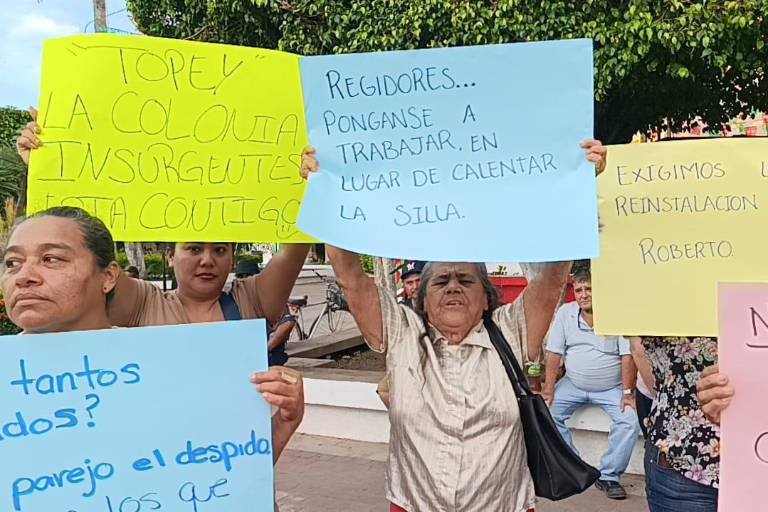 "TOPEY"
LA COLONIA
INSURGENTES
ESTA CONTIGO
REGIDORES...
PONGANSE A
TRABAJAR, EN
LUGAR DE CALENTAR
LA SILLA.
EXIGIMOS L
REINSTALACION
ROBERTO.
tantos
dos?
parejo el despido
los que